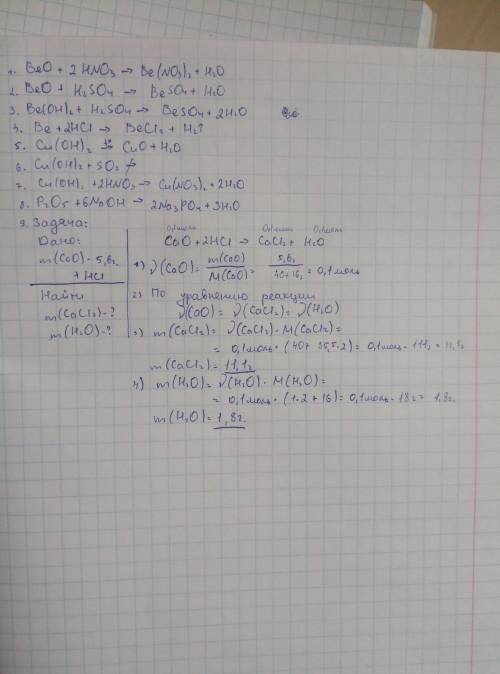 1. BeO + 2HNO3 → Be(NO3)2 + H2O
2. BeO + H2SO4 → BeSO4 + H2O
3. Be(OH)2 + H2SO4 → BeSO4 + 2H2O
4. Be + 2HCl → BeCl2 + H2↑
5. Cu(OH)2 → CuO + H2O
6. Cu(OH)2 + SO2 ↛
7. Cu(OH)2 + 2HNO3 → Cu(NO3)2 + 2H2O
8. P2O5 + 6NaOH → 2Na3PO4 + 3H2O
9. Задача:
Дано:
m(CaO) - 5,6г
+ HCl
Найти
m(CaCl2) - ?
m(H2O) - ?
0,1моль 0,1моль 0,1моль
CaO + 2HCl → CaCl2 + H2O
1) ν(CaO) = m(CaO) / M(CaO) = 5,6г / 40+16г = 0,1моль
2) По уравнению реакции
ν(CaO) = ν(CaCl2) = ν(H2O)
3) m(CaCl2) = ν(CaCl2) · M(CaCl2) =
= 0,1моль · (40 + 35,5·2) = 0,1моль · 111г = 11,1г
m(CaCl2) = 11,1г
4) m(H2O) = ν(H2O) · M(H2O) =
= 0,1моль · (1·2 + 16) = 0,1моль · 18г = 1,8г.
m(H2O) = 1,8г.